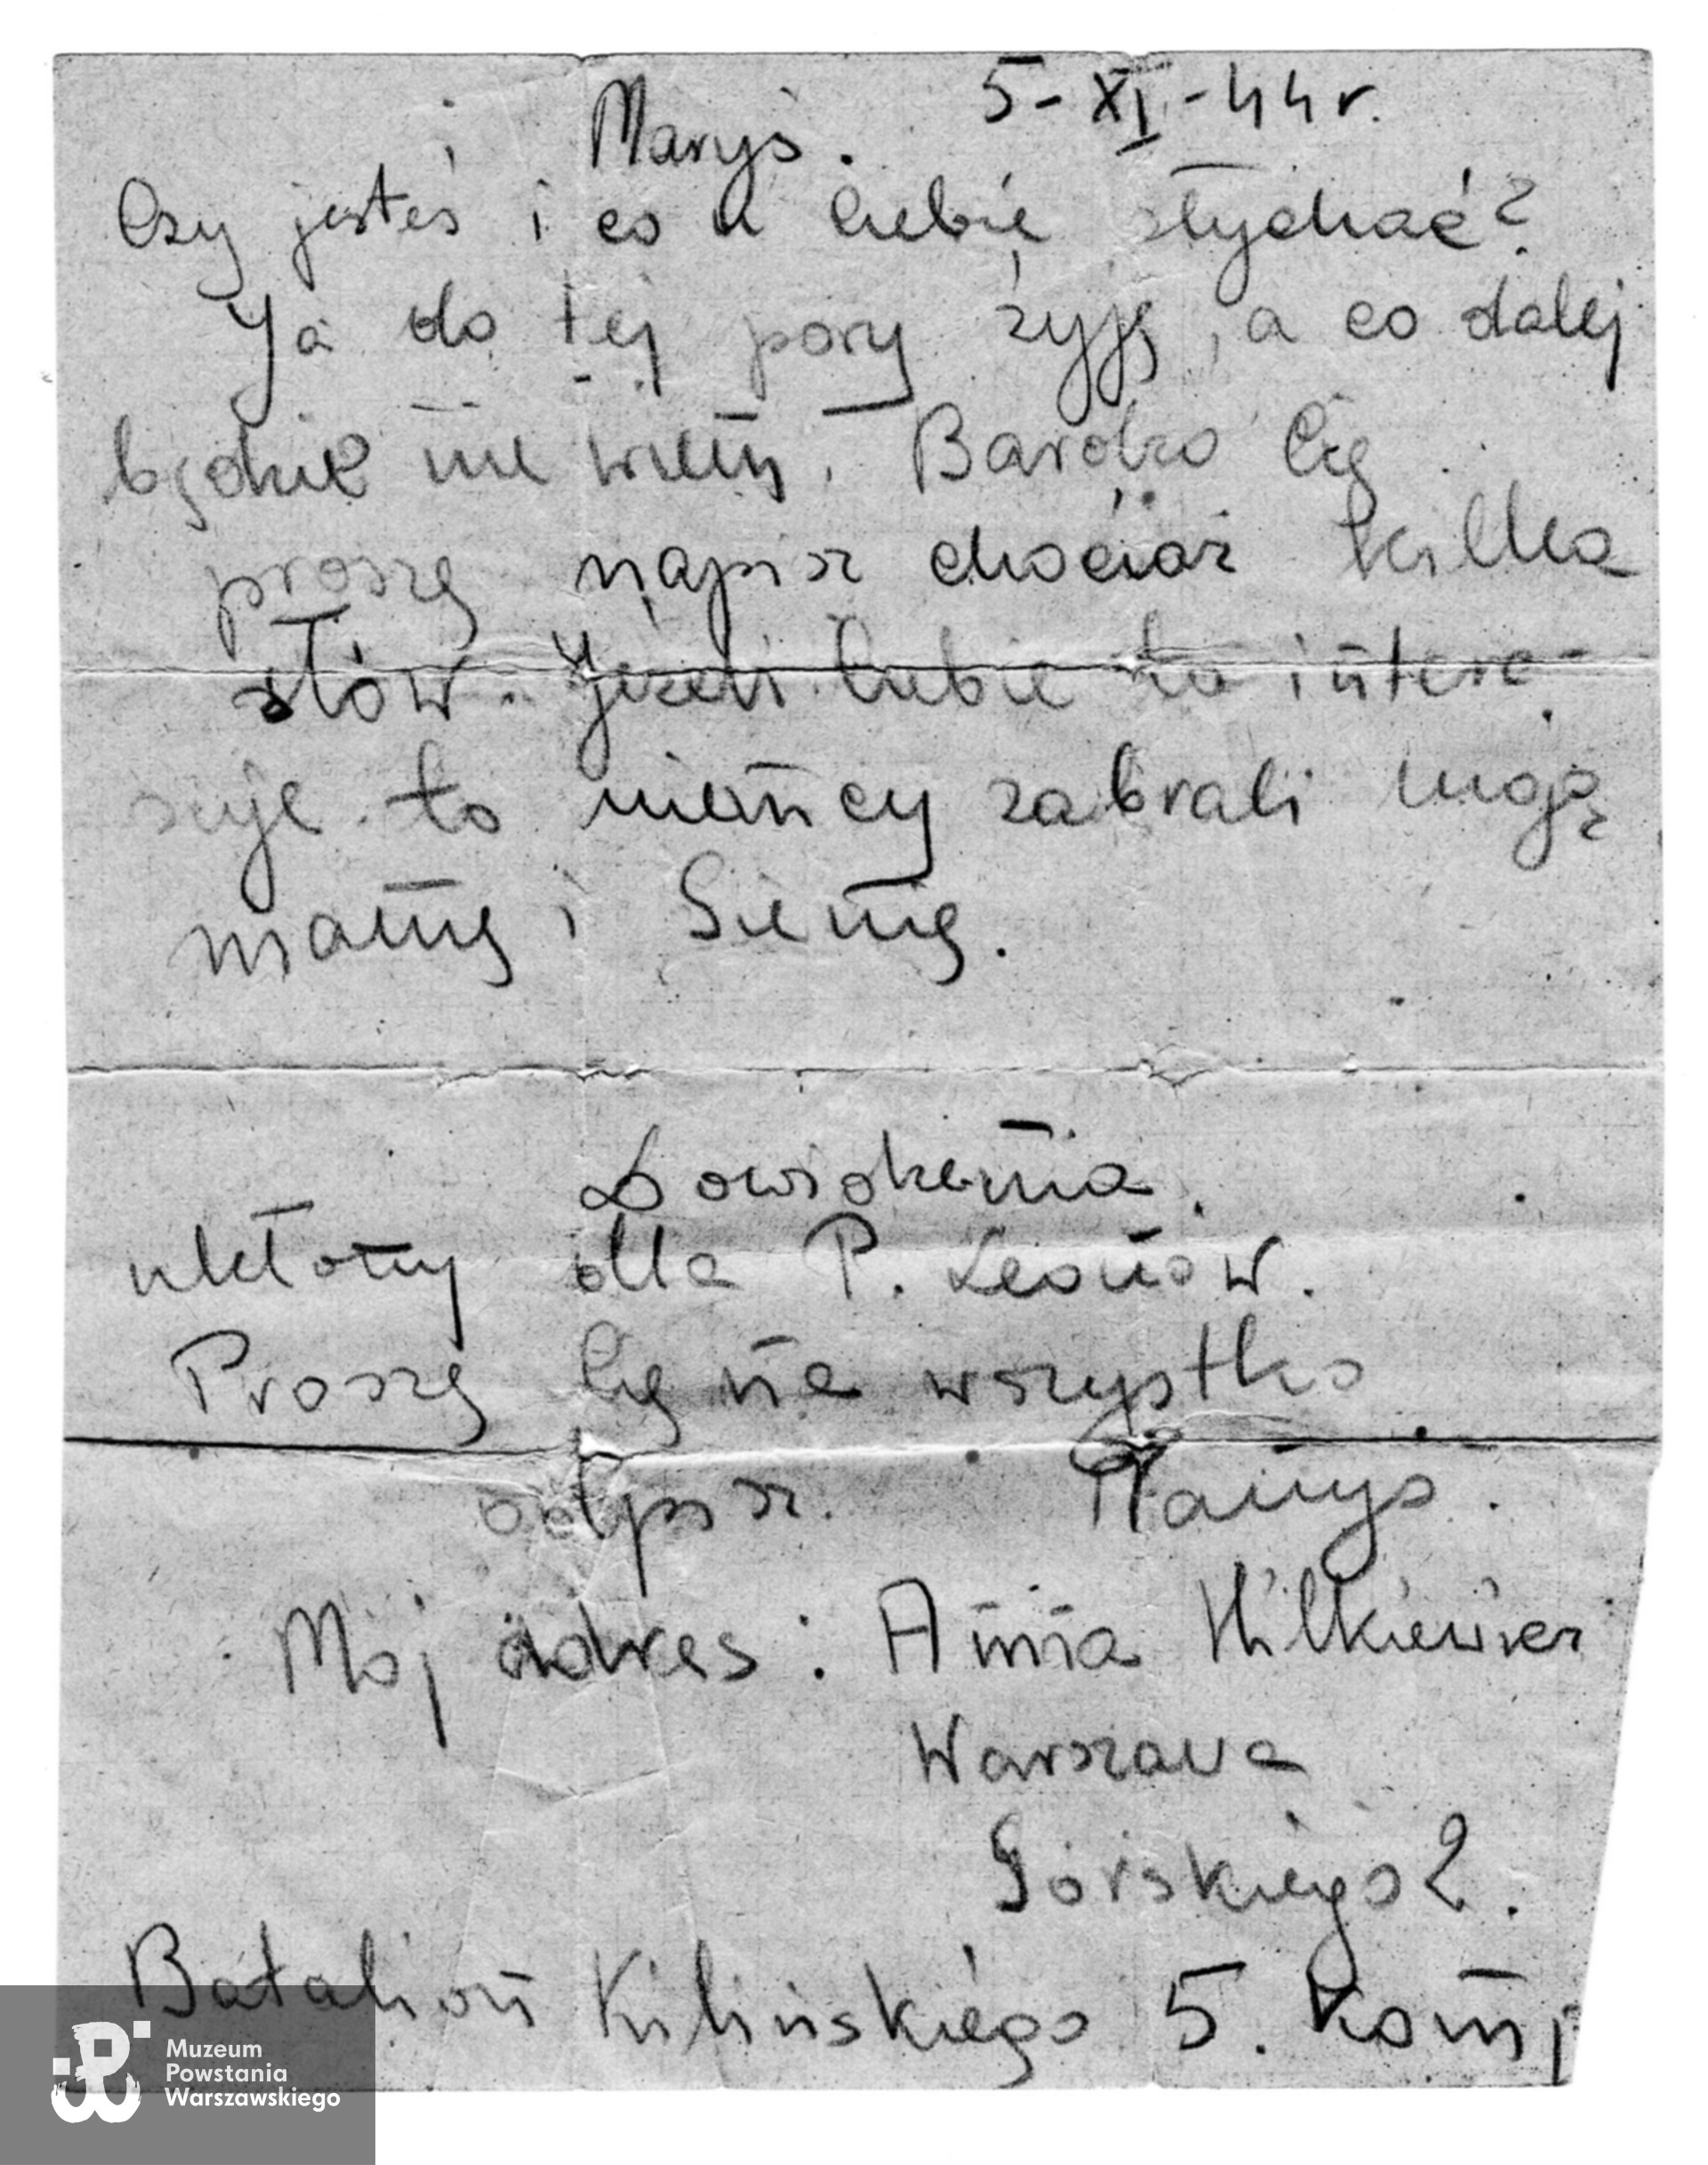 5-XI-44r.
Maryś.
Czy jesteś i co u Ciebie słychać?
Ja do tej pory żyję, a co dalej
będzie nie wiem. Bardzo Cię
proszę napisz chociaż kilka
słów. Jeżeli Ciebie to intere-
suje to niemcy zabrali moją
mamę i Sienię.
Dowidzenia.
ukłony dla P. Leonów.
Proszę Cię na wszystko
odpisz. Hanyś.
Mój adres: Anna Wilkiewicz
Warszawa
Górskiego 2.
Batalion Kilińskiego 5. komp
Muzeum
Powstania
Warszawskiego